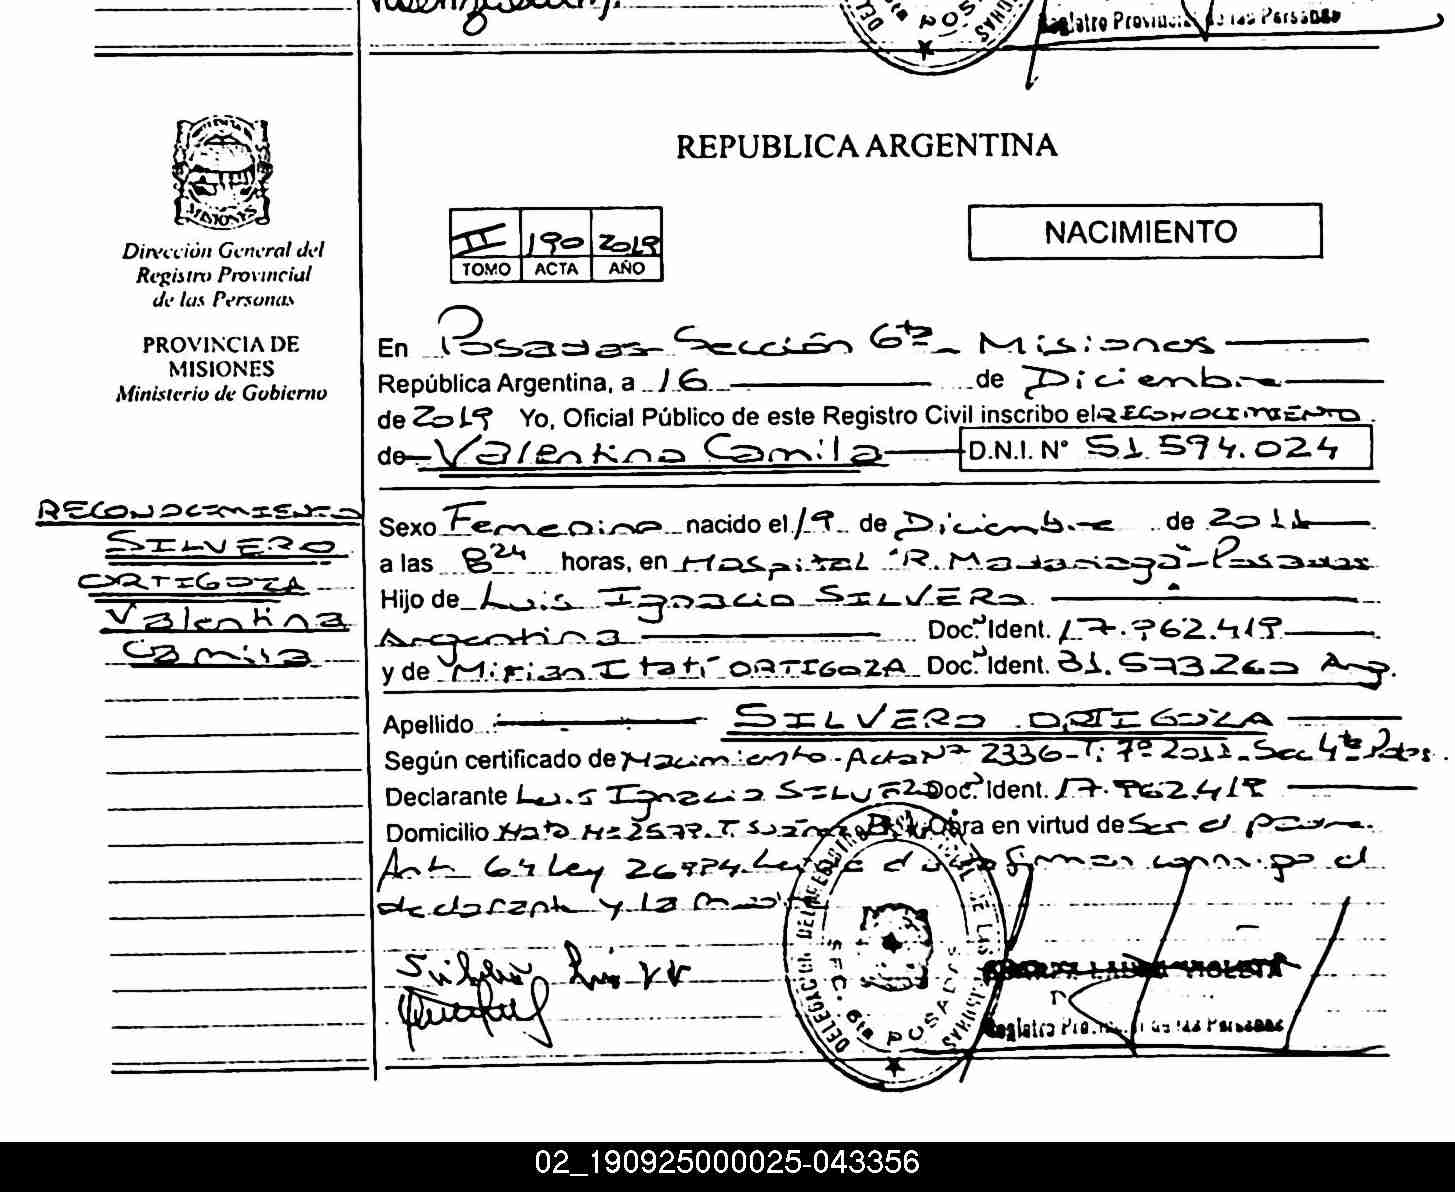 Registro Provincial de las Personas
REPUBLICA ARGENTINA
MISIONES
Dirección General del
Registro Provincial
de las Personas
PROVINCIA DE
MISIONES
Ministerio de Gobierno
II 190 2019
TOMO ACTA AÑO
NACIMIENTO
En Posadas Sección 6ta - Misiones
República Argentina, a 16 de Diciembre
de 2019 Yo, Oficial Público de este Registro Civil inscribo el RECONOCIMIENTO
de Valentina Camila D.N.I. N° 51.594.024
RECONOCIMIENTO
SILVERO
ORTIGOZA
Valentina
Camila
Sexo Femenino nacido el 19 de Diciembre de 2011
a las 8 24 horas, en Hospital "R. Madariaga" - Posadas
Hijo de Luis Ignacio SILVERO
Argentina Doc. Ident. 17.962.419
y de Mirian Itatí ORTIGOZA Doc. Ident. 31.573.260 Arg.
Apellido SILVERO ORTIGOZA
Según certificado de Nacimiento - Acta Nº 2336 - T: 7º 2011 - Sec 4ta Pdas.
Declarante Luis Ignacio SILVERO Doc. Ident. 17.962.419
Domicilio 2577 Obra en virtud de Ser el padre.
Art. 64 Ley 26994. firman conmigo el
declarante y la madre
DELEGACION DEL REGISTRO PROVINCIAL DE LAS PERSONAS
SEC. 6ta POSADAS
VIOLETA
Registro Provincial de las Personas
02_190925000025-043356